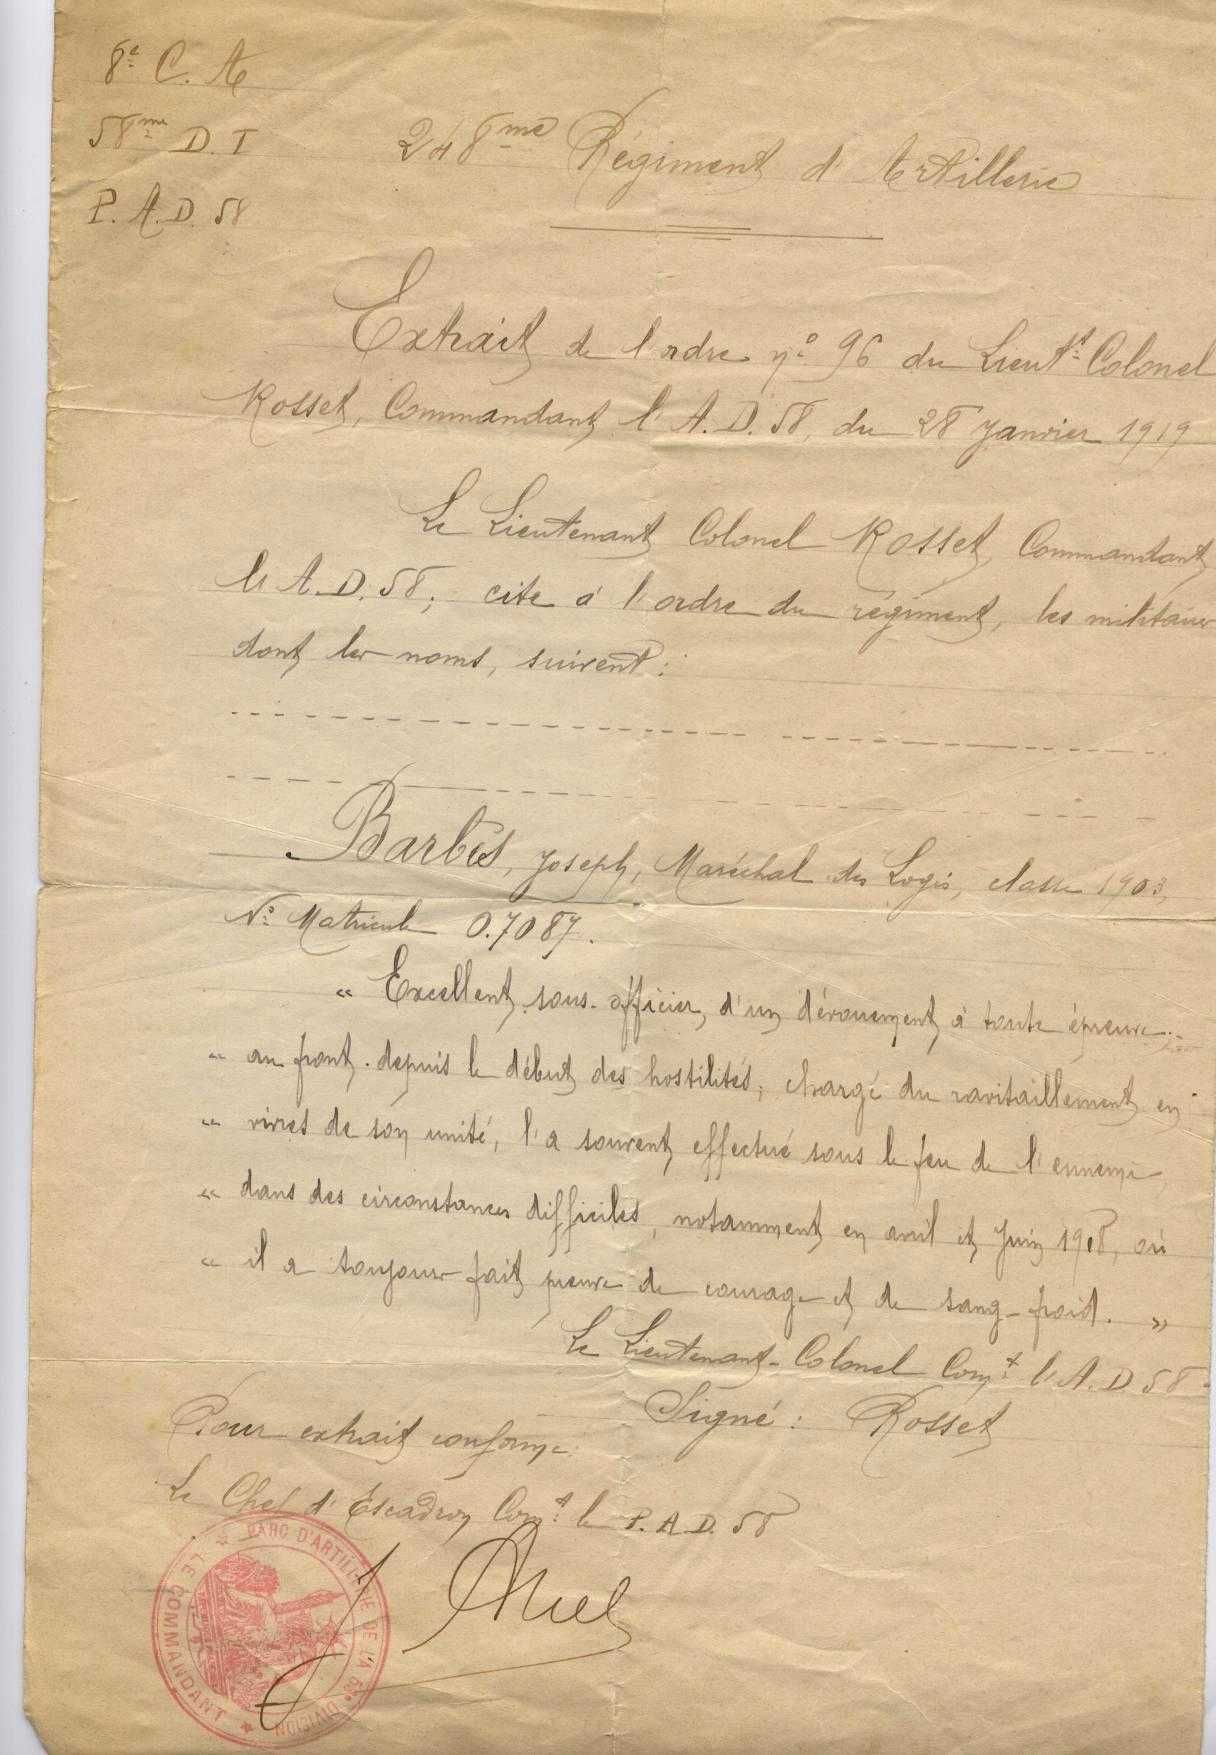 8e C. A
58me D. I
P. A. D. 58
248me Régiment d'Artillerie
Extrait de l'ordre no 96 du Lieutt Colonel
Rosset, Commandant l'A.D. 58, du 28 Janvier 1919
Le Lieutenant Colonel Rosset, Commandant
l'A.D. 58, cite à l'ordre du régiment, les militaires
dont les noms, suivent :
Barbès, Joseph, Maréchal des Logis, classe 1903,
No Matricule 0.7087.
" Excellent sous-officier, d'un dévouement à toute épreuve
" au front depuis le début des hostilités, chargé du ravitaillement en
" vivres de son unité, l'a souvent effectué sous le feu de l'ennemi
" dans des circonstances difficiles, notamment en avril et Juin 1918, où
" il a toujours fait preuve de courage et de sang-froid. "
Le Lieutenant-Colonel Comt l'A.D 58
Signé : Rosset
Pour extrait conforme
Le Chef d'Escadron Comt le P.A.D. 58
LE COMMANDANT ★ PARC D'ARTILLERIE DE LA 58e DIVISION ★